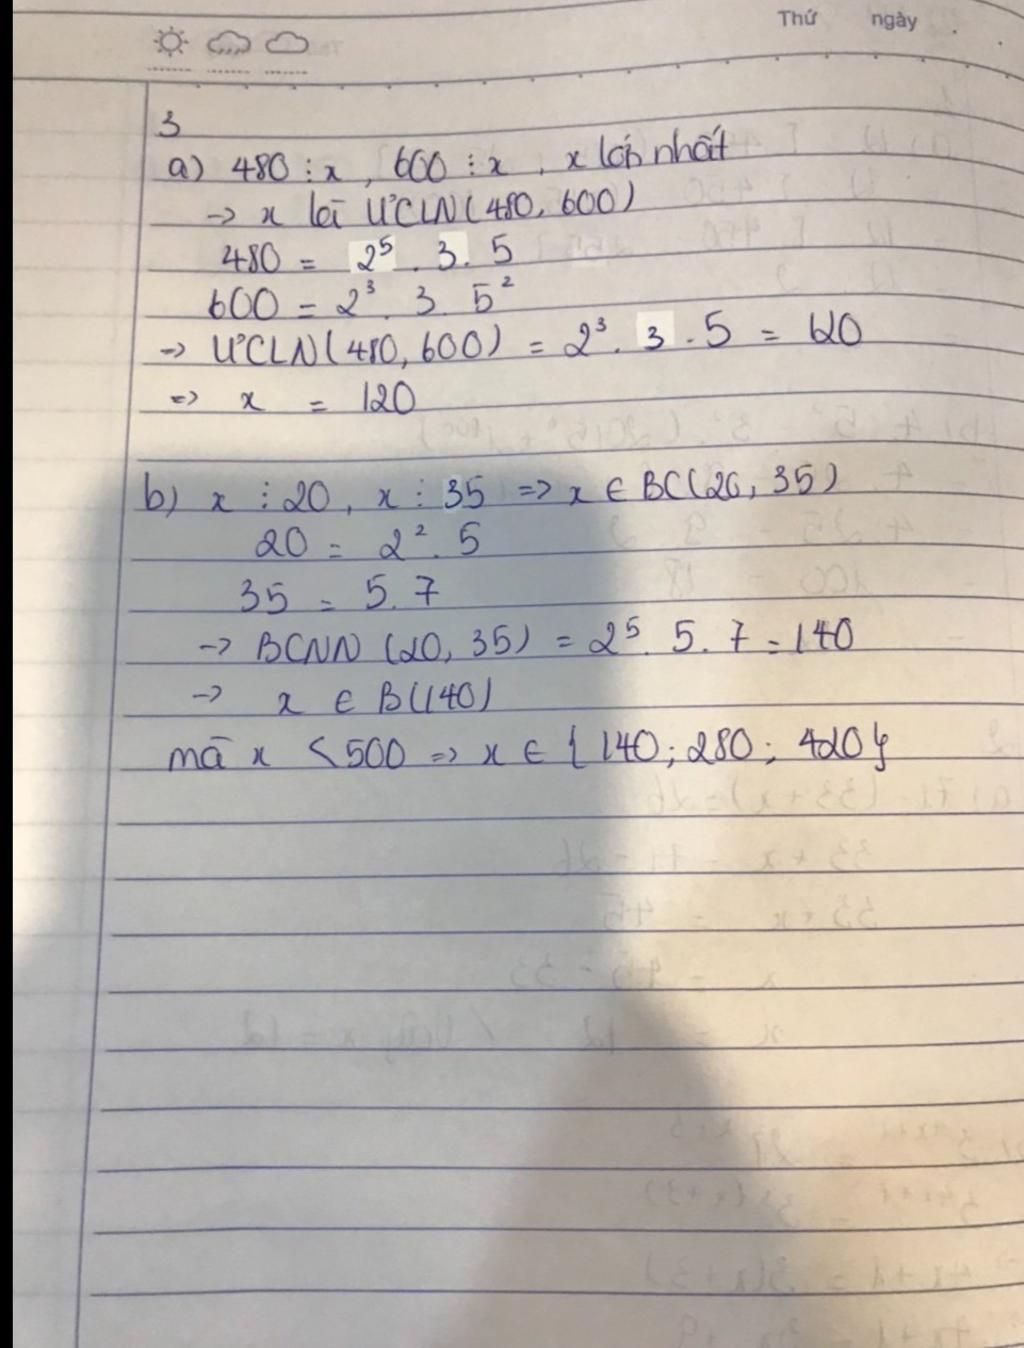 Thứ ngày
3
a) 480 ⋮ x, 600 ⋮ x, x lớn nhất
→ x là ƯCLN(480, 600)
480 = 2⁵ . 3 . 5
600 = 2³ . 3 . 5²
→ ƯCLN(480, 600) = 2³ . 3 . 5 = 120
=> x = 120
b) x ⋮ 20, x ⋮ 35 => x ∈ BC(20, 35)
20 = 2² . 5
35 = 5 . 7
→ BCNN (20, 35) = 2⁵ . 5 . 7 = 140
→ x ∈ B(140)
mà x < 500 => x ∈ { 140; 280; 420}